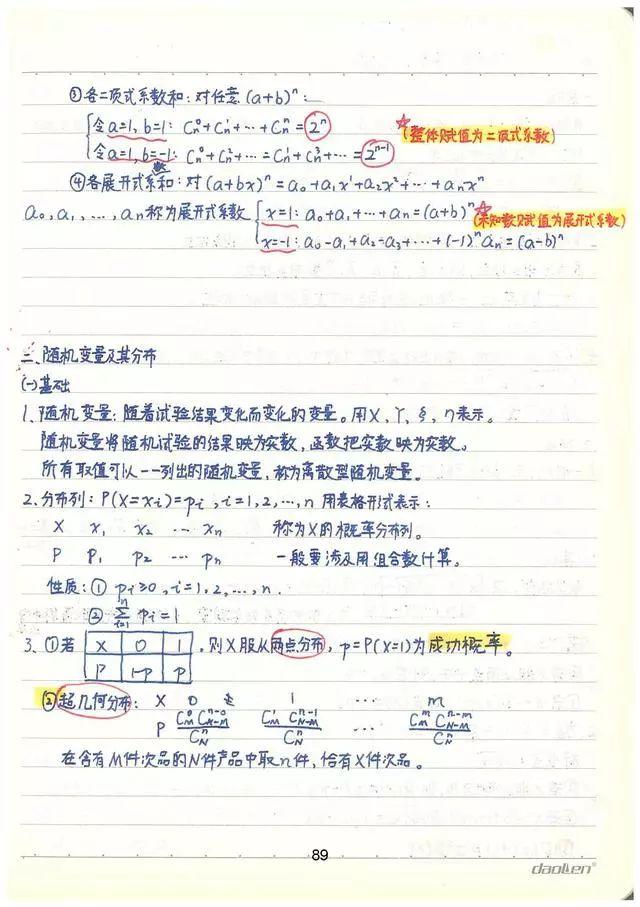 ③各二项式系数和:对任意(a+b)ⁿ:
令a=1,b=1: Cₙ⁰+Cₙ¹+…+Cₙⁿ=2ⁿ ☆(整体赋值为二项式系数)
令a=1,b=-1: Cₙ⁰+Cₙ²+…=Cₙ¹+Cₙ³+…=2ⁿ⁻¹
④各展开式系数和:对(a+bx)ⁿ=a₀+a₁x¹+a₂x²+…+aₙxⁿ
a₀,a₁,…,aₙ称为展开式系数 x=1: a₀+a₁+…+aₙ=(a+b)ⁿ ☆(未知数赋值为展开式系数)
x=-1: a₀-a₁+a₂-a₃+…+(-1)ⁿaₙ=(a-b)ⁿ
二、随机变量及其分布
(一)基础
1.随机变量:随着试验结果变化而变化的变量。用X,Y,ξ,η表示。
随机变量将随机试验的结果映为实数,函数把实数映为实数。
所有取值可以一一列出的随机变量,称为离散型随机变量。
2.分布列:P(X=xᵢ)=pᵢ,i=1,2,…,n 用表格形式表示:
X x₁ x₂ … xₙ 称为X的概率分布列。
P P₁ p₂ … pₙ 一般要涉及用组合数计算。
性质:① pᵢ≥0,i=1,2,…,n.
② ∑ⁿᵢ₌₁ pᵢ=1
3.①若 X 0 1 ,则X服从两点分布,p=P(X=1)为成功概率。
P 1-p p
②超几何分布: X 0 1 … m
P C_M^0 C_{N-M}^{n-0}/C_N^n C_M^1 C_{N-M}^{n-1}/C_N^n … C_M^m C_{N-M}^{n-m}/C_N^n
在含有M件次品的N件产品中取n件,恰有X件次品。
89
daolen